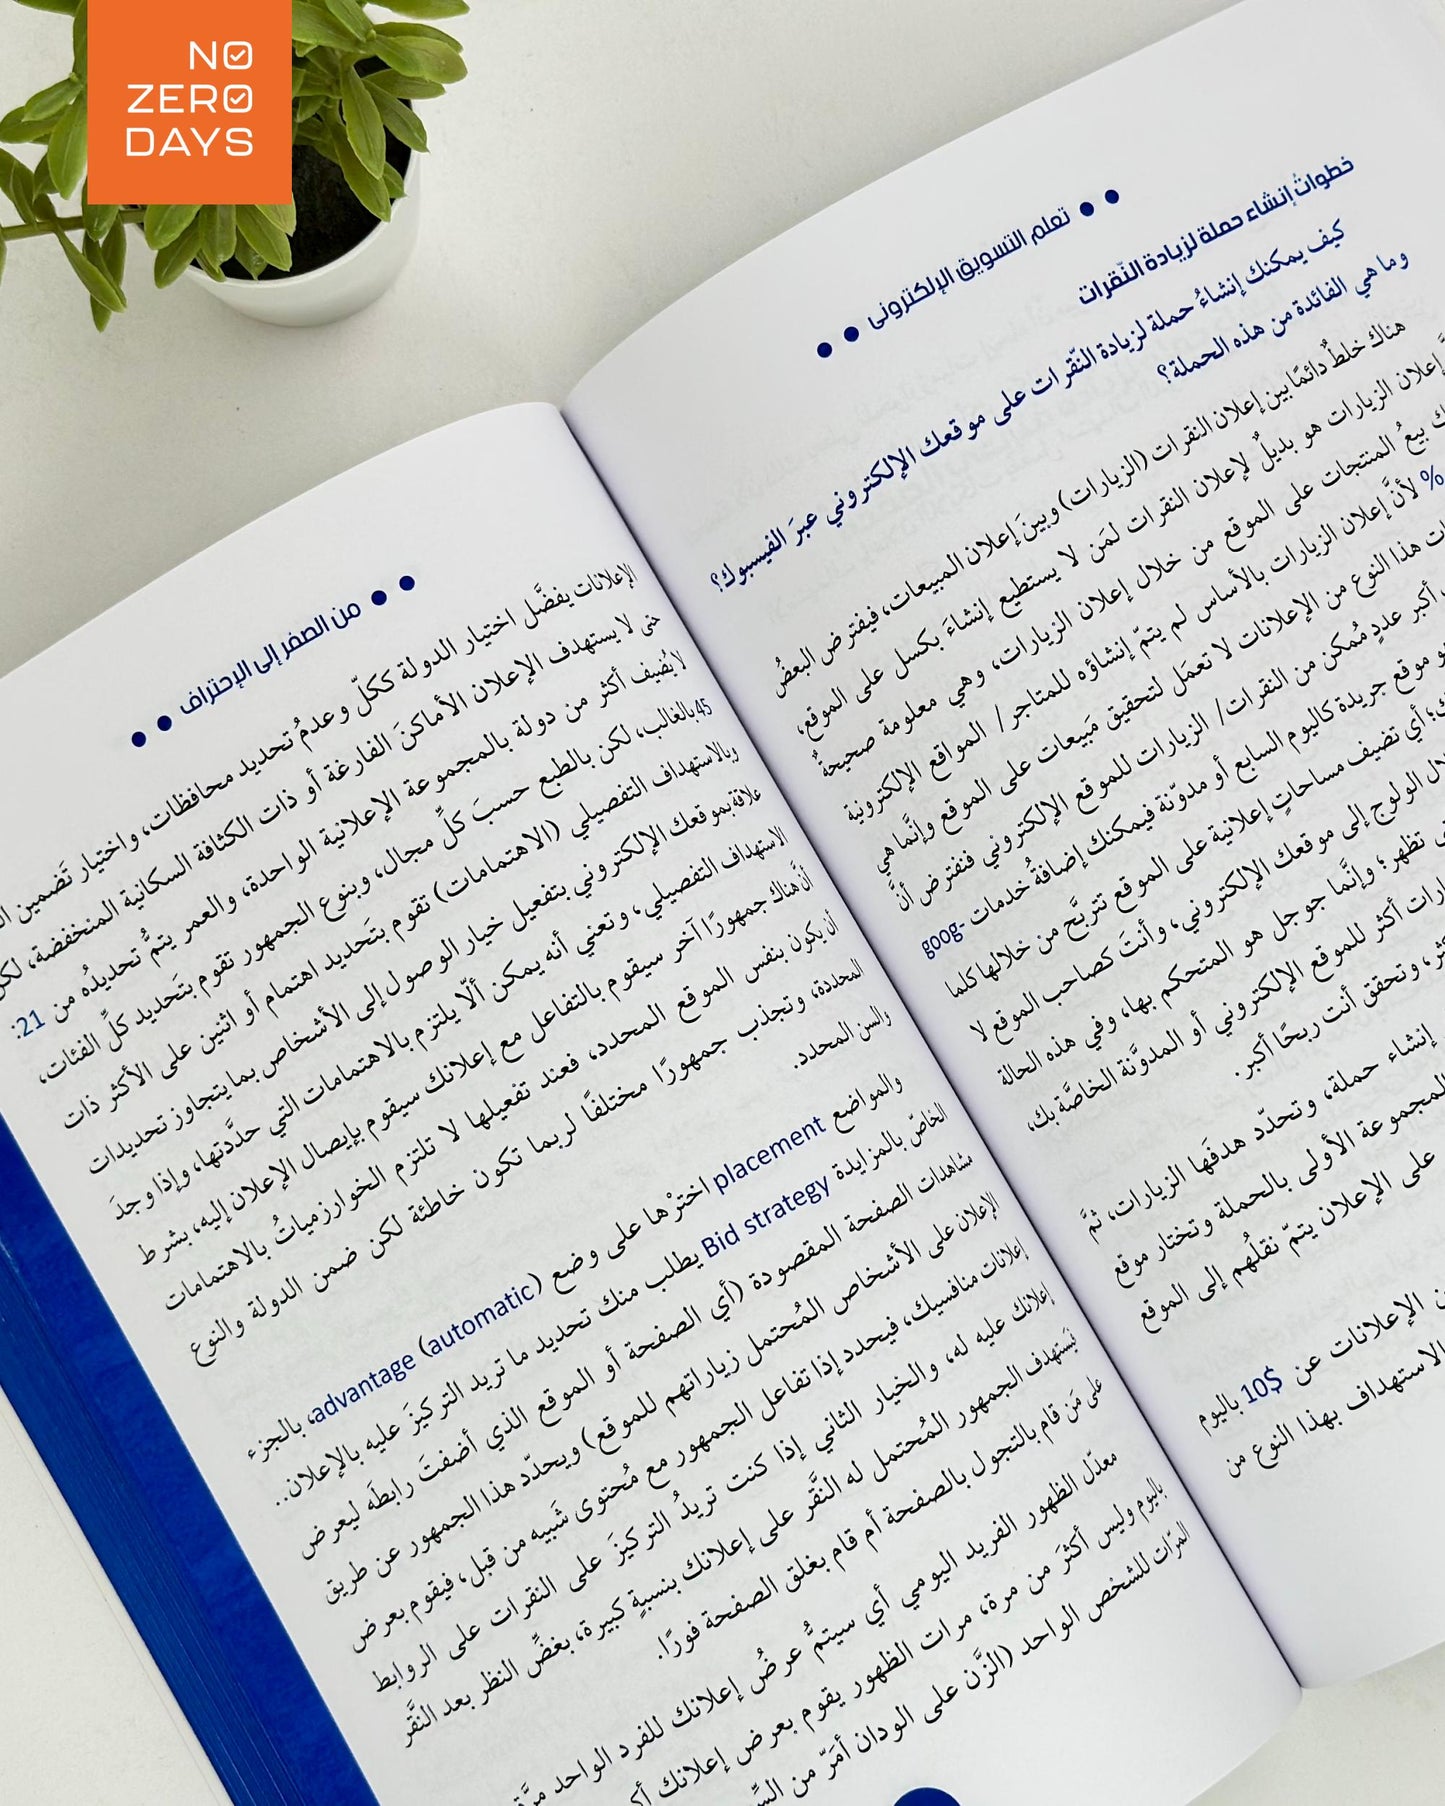 NO
ZERO
DAYS
تعلم التسويق الإلكترونى
خطوات إنشاء حملة لزيادة النّقرات
كيف يمكنك إنشاءُ حملة لزيادة النّقرات على موقعك الإلكتروني عبرَ الفيسبوك؟
وما هي الفائدة من هذه الحملة؟
هناك خلطٌ دائمًا بين إعلان النقرات (الزيارات) وبينَ إعلان المبيعات، فيفترض البعضُ
إعلان الزيارات هو بديلٌ لإعلان النقرات لمَن لا يستطيع إنشاءَ بكسل على الموقع،
بيعُ المنتجات على الموقع من خلال إعلان الزيارات، وهي معلومة صحيحةٌ
% لأنَّ إعلان الزيارات بالأساس لم يتمّ إنشاؤه للمتاجر/ المواقع الإلكترونية
هذا النوع من الإعلانات لا تعمَل لتحقيق مَبيعات على الموقع وإنَّما هي
أكبر عددٍ مُمكن من النقرات/ الزيارات للموقع الإلكتروني فنفترض أنَّ
موقع جريدة كاليوم السابع أو مدوّنة فيمكنك إضافةُ خدمات goog-
أي تضيف مساحاتٍ إعلانية على الموقع تتربَّح من خلالها كلما
الولوج إلى موقعك الإلكتروني، وأنتَ كصاحب الموقع لا
تظهر؛ وإنَّما جوجل هو المتحكم بها، وفي هذه الحالة
أكثر للموقع الإلكتروني أو المدوَّنة الخاصَّة بك،
وتحقق أنت ربحًا أكبر.
إنشاء حملة، وتحدّد هدفَها الزيارات، ثمَّ
المجموعة الأولى بالحملة وتختار موقع
على الإعلان يتمّ نقلُهم إلى الموقع
الإعلانات عن 10$ باليوم
الاستهداف بهذا النوع من
من الصفر إلى الإحتراف
الإعلانات يفضَّل اختيار الدولة ككلّ وعدمُ تحديد محافظات، واختيار تَضمين
حتى لا يستهدف الإعلان الأماكنَ الفارغة أو ذات الكثافة السكانية المنخفضة، لكن
لا يُضيف أكثر من دولة بالمجموعة الإعلانية الواحدة، والعمر يتمُّ تحديدُه من 21:
45 بالغالب، لكن بالطبع حسبَ كلِّ مجال، وبنوع الجمهور تقوم بتَحديد كلِّ الفئات،
وبالاستهداف التفصيلي (الاهتمامات) تقوم بتَحديد اهتمام أو اثنين على الأكثر ذات
علاقة بموقعك الإلكتروني بتفعيل خيار الوصول إلى الأشخاص بما يتجاوز تحديدات
الاستهداف التفصيلي، وتعني أنه يمكن ألّا يلتزم بالاهتمامات التي حدَّدتها، وإذا وجدَ
أنَّ هناك جمهورًا آخر سيقوم بالتفاعل مع إعلانك سيقوم بإيصال الإعلان إليه، بشرط
أن يكون بنفس الموقع المحدد، فعند تفعيلها لا تلتزم الخوارزمياتُ بالاهتمامات
المحددة، وتجذب جمهورًا مختلفًا لربما تكون خاطئة لكن ضمن الدولة والنوع
والسن المحدد.
والمواضع placement اخترْها على وضع (automatic) advantage، بالجزء
الخاصّ بالمزايدة Bid strategy يطلب منك تحديد ما تريد التركيزَ عليه بالإعلان..
مشاهدات الصفحة المقصودة (أي الصفحة أو الموقع الذي أضفتَ رابطَه ليعرض
الإعلان على الأشخاص المُحتمل زياراتهم للموقع) ويحدّد هذا الجمهور عن طريق
إعلانات منافسيك، فيحدد إذا تفاعل الجمهور مع مُحتوى شَبيه من قبل، فيقوم بعرض
إعلانك عليه له، والخيار الثاني إذا كنت تريدُ التركيزَ على النقرات على الروابط
يَستهدف الجمهور المُحتمل له النَّقر على إعلانك بنسبةٍ كبيرة، بغضِّ النظر بعد النَّقر
على مَن قام بالتجول بالصفحة أم قام بغلق الصفحة فورًا.
معدّل الظهور الفريد اليومي أي سيتمُّ عرضُ إعلانك للفرد الواحد مرَّة
باليوم وليس أكثرَ من مرة، مرات الظهور يقوم بعرض إعلانك
المرّات للشخص الواحد (الزَّن على الودان أمَرّ من